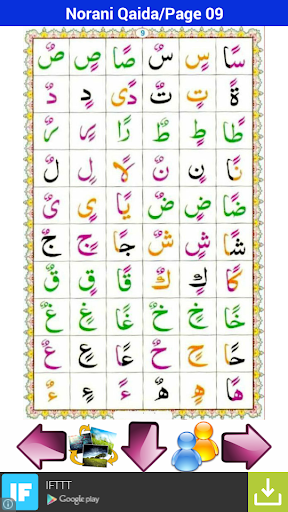 Norani Qaida/Page 09
9
سًا سٍ سٌ صًا صٍ صٌ
ةً تٍ تٌ دًى دٍ دٌ
طًا طٍ طٌ رًا رٍ رٌ
نًا نٍ نٌ لًا لٍ لٌ
ضًا ضٍ ضٌ يًا ىٍ ىٌ
شًا شٍ شٌ جًا جٍ جٌ
كًا كٍ كٌ قًا قٍ قٌ
خًا خٍ خٌ غًا غٍ غٌ
حًا حٍ حٌ عًا عٍ عٌ
هًا هٍ هٌ ءً ءٍ ءٌ
IF
IFTTT
Google play